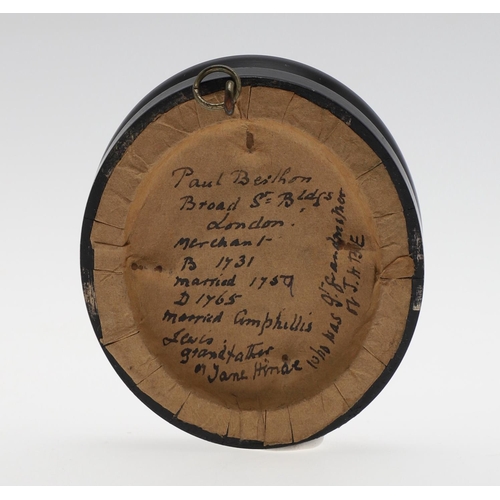 Paul Berthon
Broad St= Bldgs
London.
Merchant
B 1731
married 1759
D 1765
married Amphillis
Lewis
grandfather
of Jane Hinde
who was Gt grandmother
of J.H.B.E